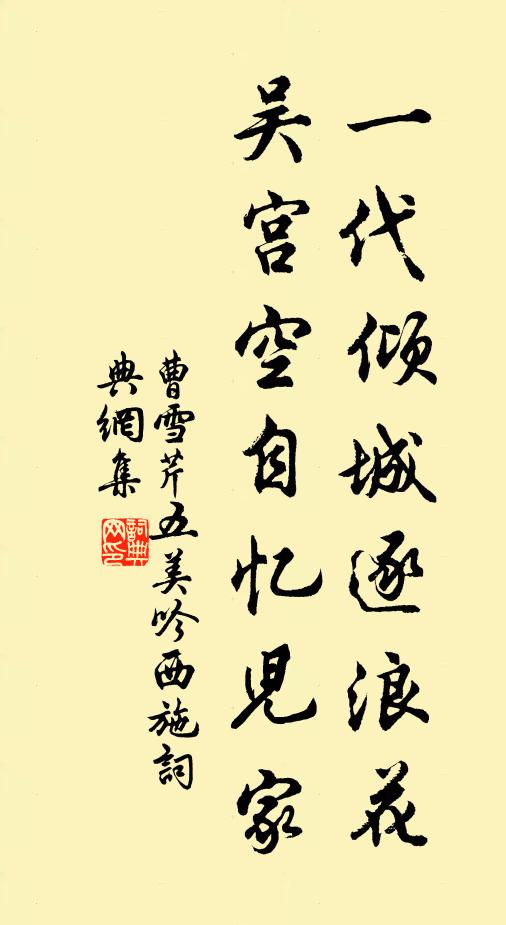 一代倾城逐浪花
吴宫空自忆児家
曹雪芹五美吟西施詞
典網集
詞典网印